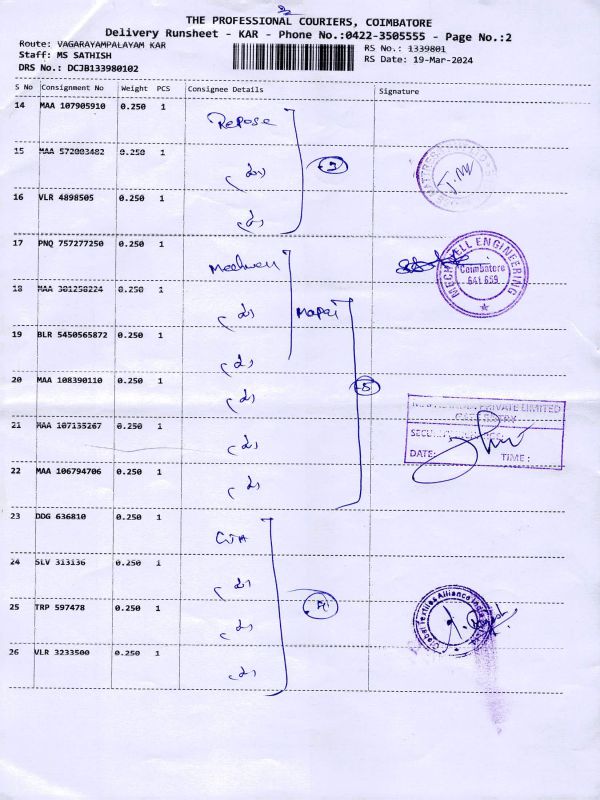 THE PROFESSIONAL COURIERS, COIMBATORE
Delivery Runsheet - KAR - Phone No.:0422-3505555 - Page No.:2
Route: VAGARAYAMPALAYAM KAR
RS No.: 1339801
Staff: MS SATHISH
RS Date: 19-Mar-2024
DRS No.: DCJB133980102
S No Consignment No Weight PCS Consignee Details Signature
14 MAA 107905910 0.250 1
Repose
15 MAA 572003482 0.250 1
16 VLR 4898505 0.250 1
17 PNQ 757277250 0.250 1
MECHWELL ENGINEERING
Coimbatore
641 659
18 MAA 301250224 0.250 1
Mapei
19 BLR 5450565872 0.250 1
20 MAA 108390110 0.250 1
5
PRIVATE LIMITED
21 MAA 107135267 0.250 1
DATE: TIME:
22 MAA 106794706 0.250 1
23 DDG 636810 0.250 1
24 SLV 313136 0.250 1
25 TRP 597478 0.250 1
Global Textiles Alliance India
26 VLR 3233500 0.250 1